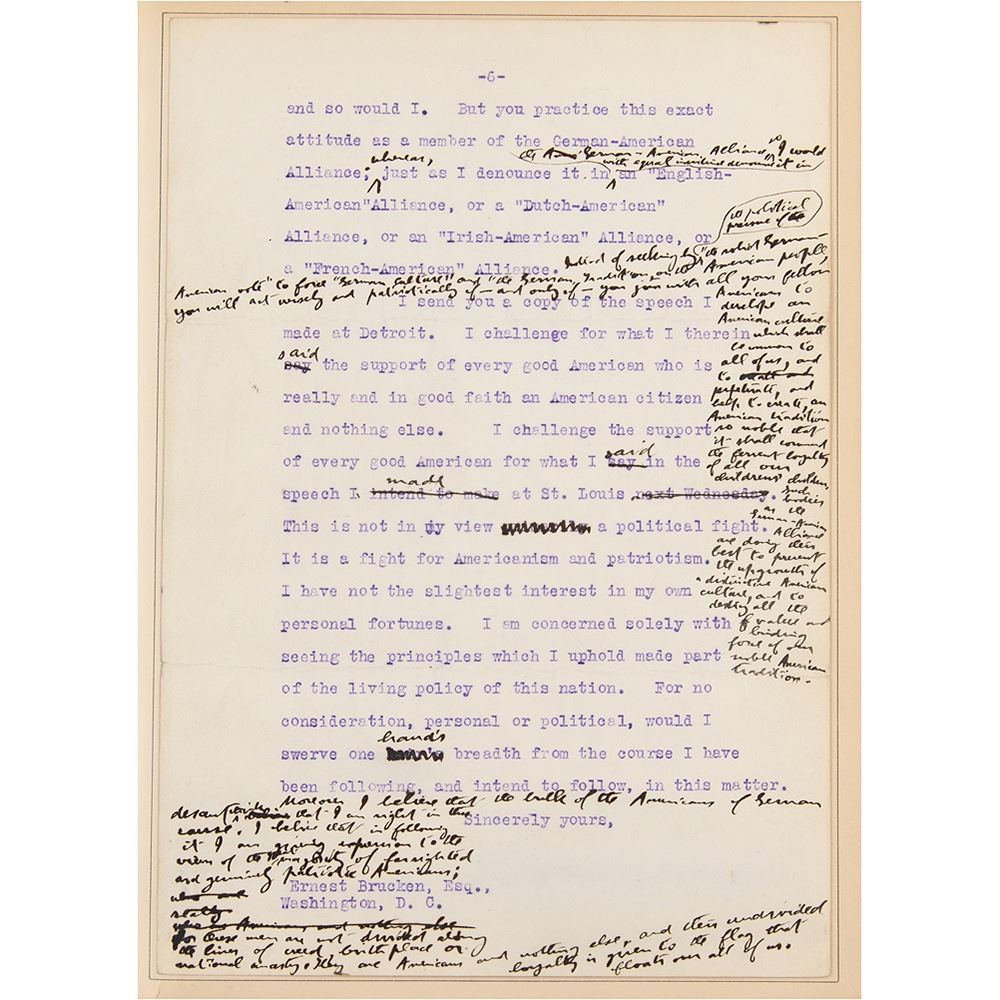 -6-
and so would I. But you practice this exact
attitude as a member of the German-American
the German-American Alliance, so I would
with equal
denounce it in
whereas,
Alliance; just as I denounce it in an "English-
American" Alliance, or a "Dutch-American"
its political
purpose of the
Alliance, or an "Irish-American" Alliance, or
a "French-American" Alliance. Instead of seeking by "the solid German-
American vote" to force "German culture" and "the German tradition" on the American people,
you will act wisely and patriotically if — and only if — you join with all your fellow
I send you a copy of the speech I
Americans to
develope an
American culture
made at Detroit. I challenge for what I therein
which shall
be common to
said
say the support of every good American who is
all of us, and
to
perpetuate, and
really and in good faith an American citizen
help to create, an
American tradition
and nothing else. I challenge the support
so noble that
it shall command
said
of every good American for what I say in the
the fervent loyalty
of all our
childrens' children.
made
speech I intend to make at St. Louis next Wednesday.
Such
bodies
as the
German-American
This is not in my view a political fight.
Alliance
are doing their
It is a fight for Americanism and patriotism.
best to prevent
the upgrowth of
I have not the slightest interest in my own
a distinctive American
culture, and to
destroy all the
personal fortunes. I am concerned solely with
value and
binding
seeing the principles which I uphold made part
force of our
noble American
tradition.
of the living policy of this nation. For no
consideration, personal or political, would I
hand's
swerve one breadth from the course I have
been following, and intend to follow, in this matter.
Moreover I believe that the bulk of the Americans of German
descent believe that I am right in this
Sincerely yours,
cause. I believe that in following
it I am giving expression to the
views of the majority of farsighted
and genuinely patriotic Americans;
Ernest Brucken, Esq.,
who are
Washington, D. C.
really
Americans and nothing else
for these men are not divided along
the lines of creed, birthplace or
national ancestry. They are Americans and nothing else, and their undivided
loyalty is given to the flag that
floats over all of us.